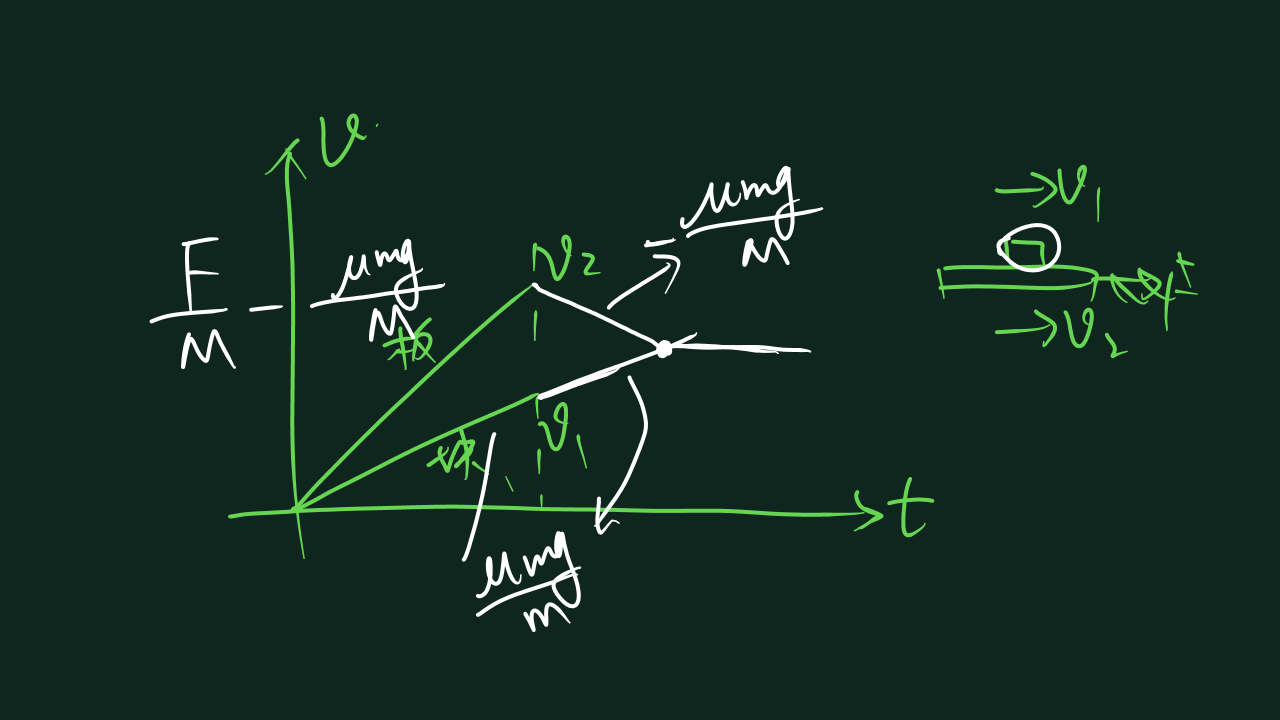 v
F/M - μmg/M
v₂
-μmg/M
v₁
μmg/m
t
→v₁
→v₂